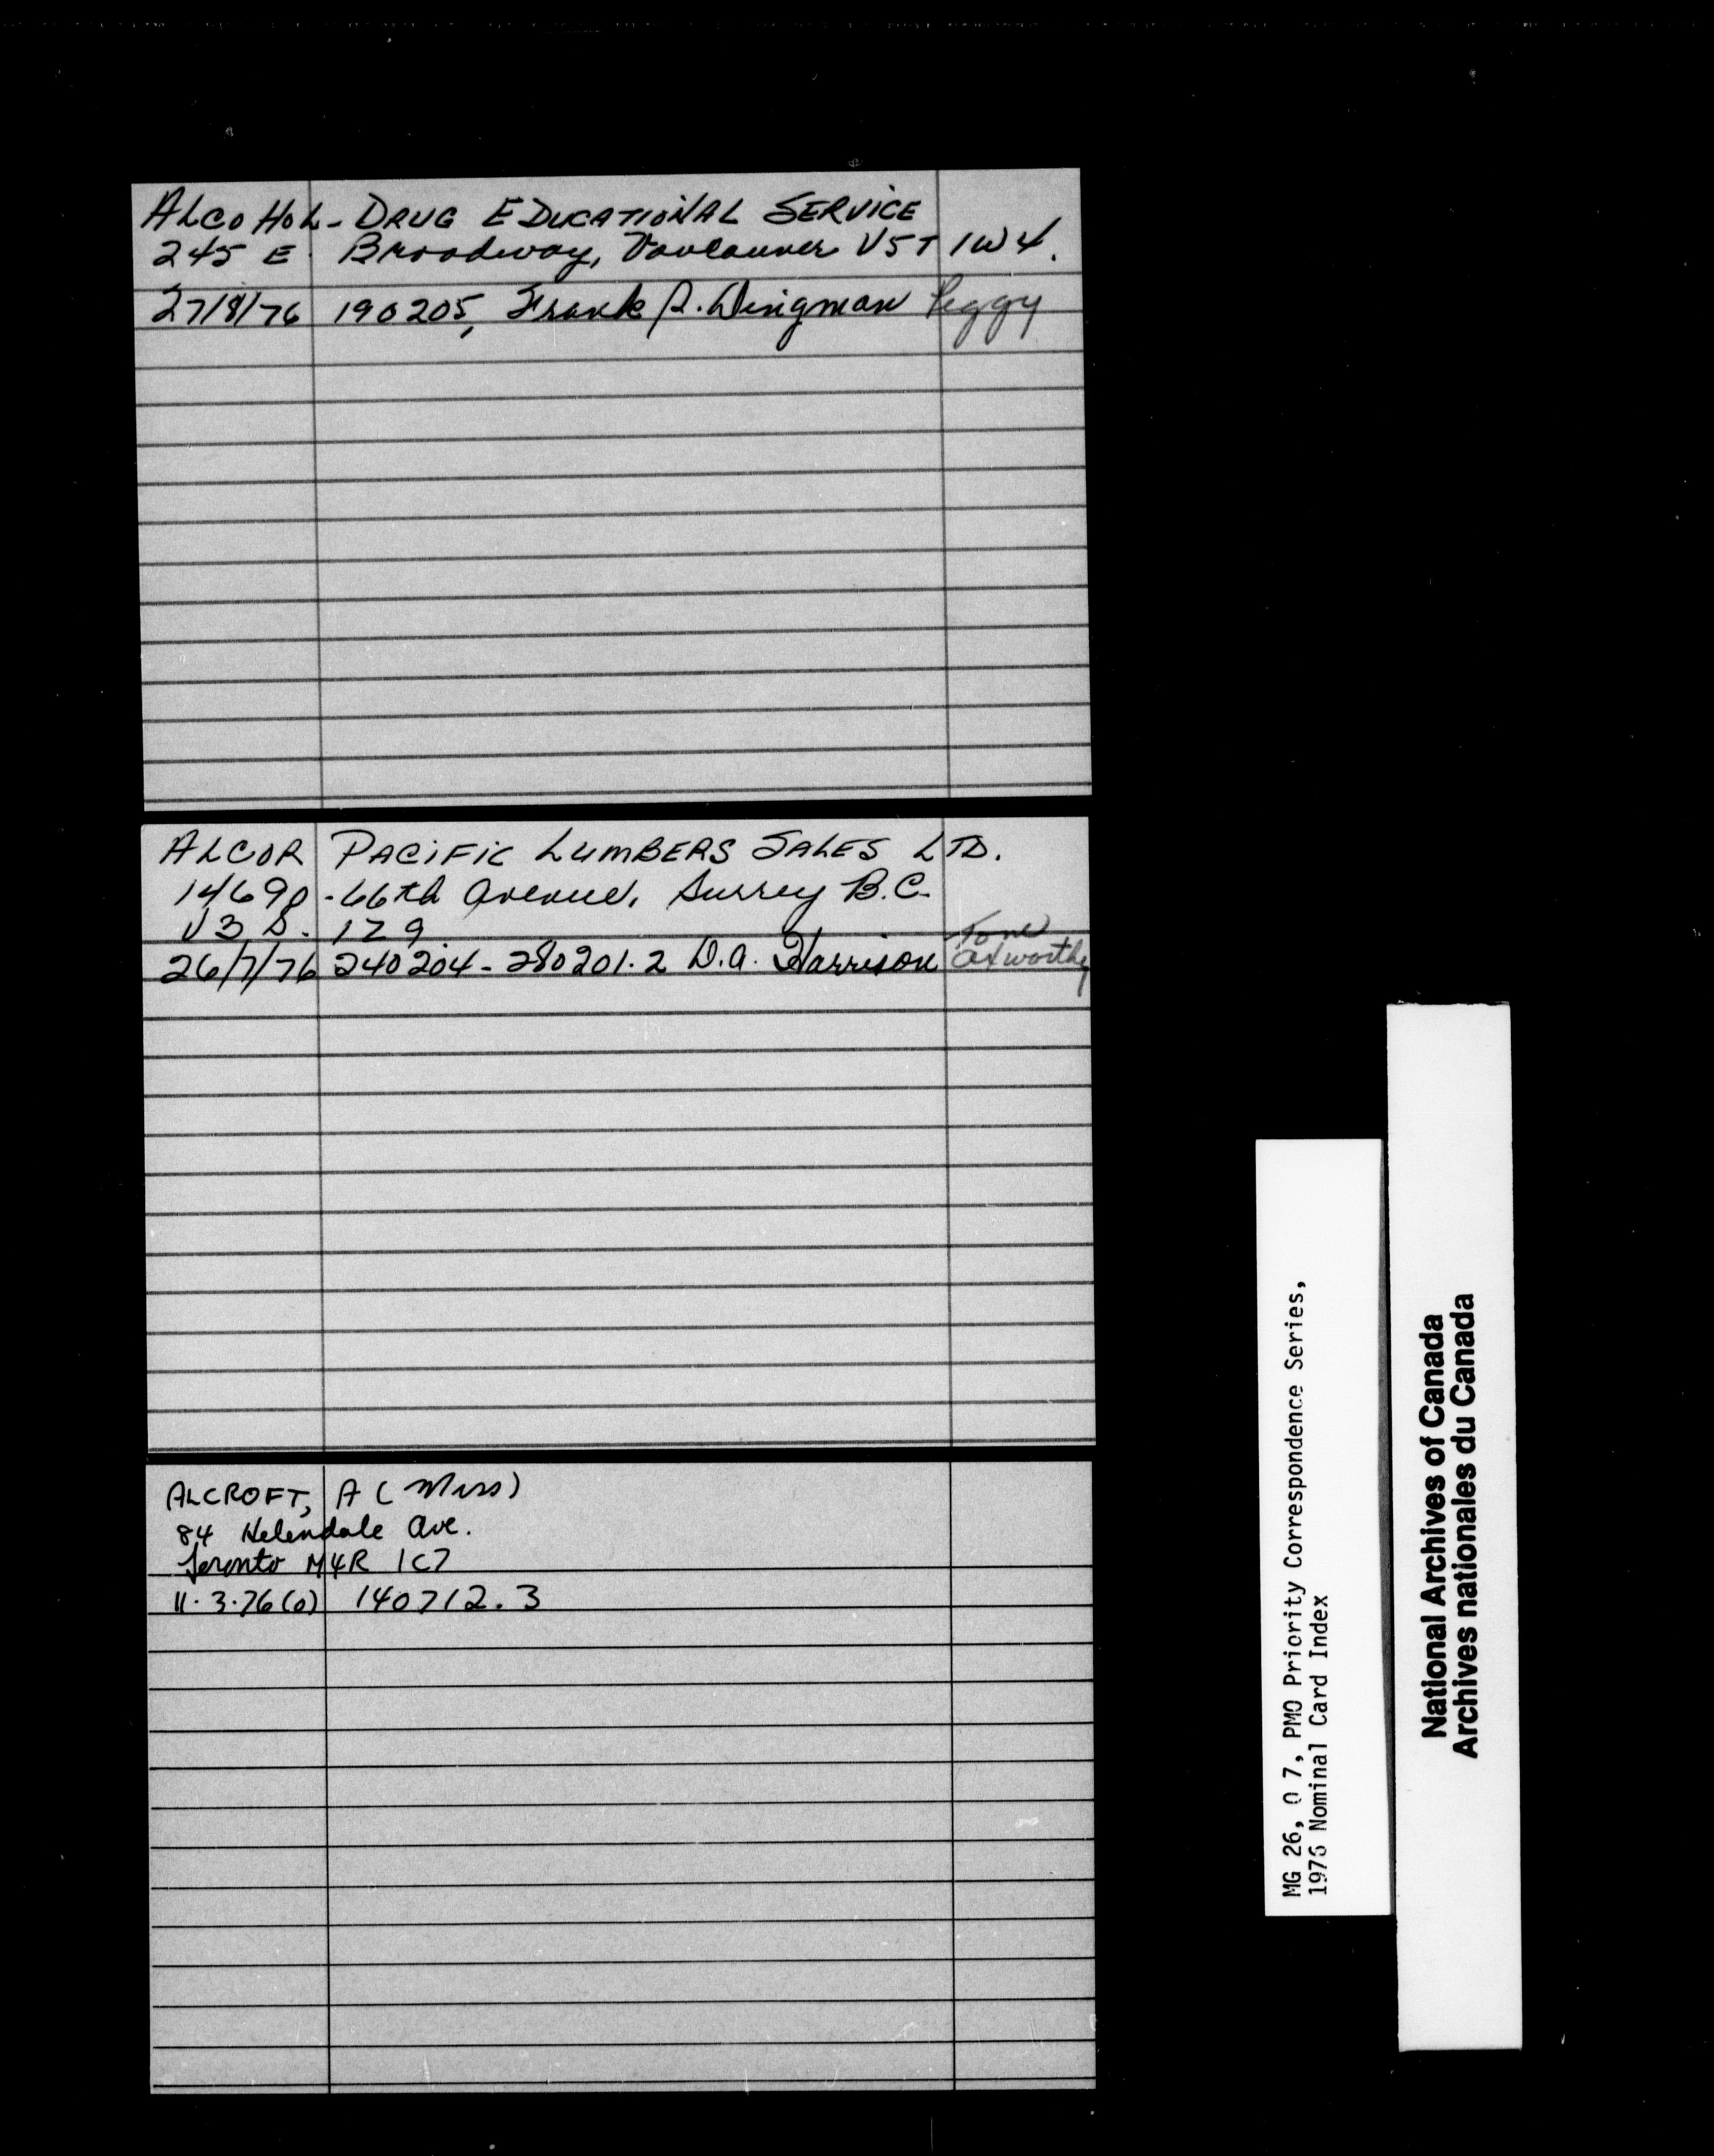 ALCOHOL-DRUG EDUCATIONAL SERVICE
245 E. Broadway, Vancouver V5T 1W4.
27/8/76 190205, Frank R. Wingman Peggy
ALCOR PACIFIC LUMBERS SALES LTD.
14690 - 66th Avenue, Surrey B.C.
V3S. 1Z9
26/7/76 240204 - 280201.2 D.A. Harrison Axworthy
ALCROFT, A (Miss)
84 Helendale Ave.
Toronto M4R 1C7
11.3.76(0) 140712.3
MG 26, O 7, PMO Priority Correspondence Series,
1976 Nominal Card Index
National Archives of Canada
Archives nationales du Canada